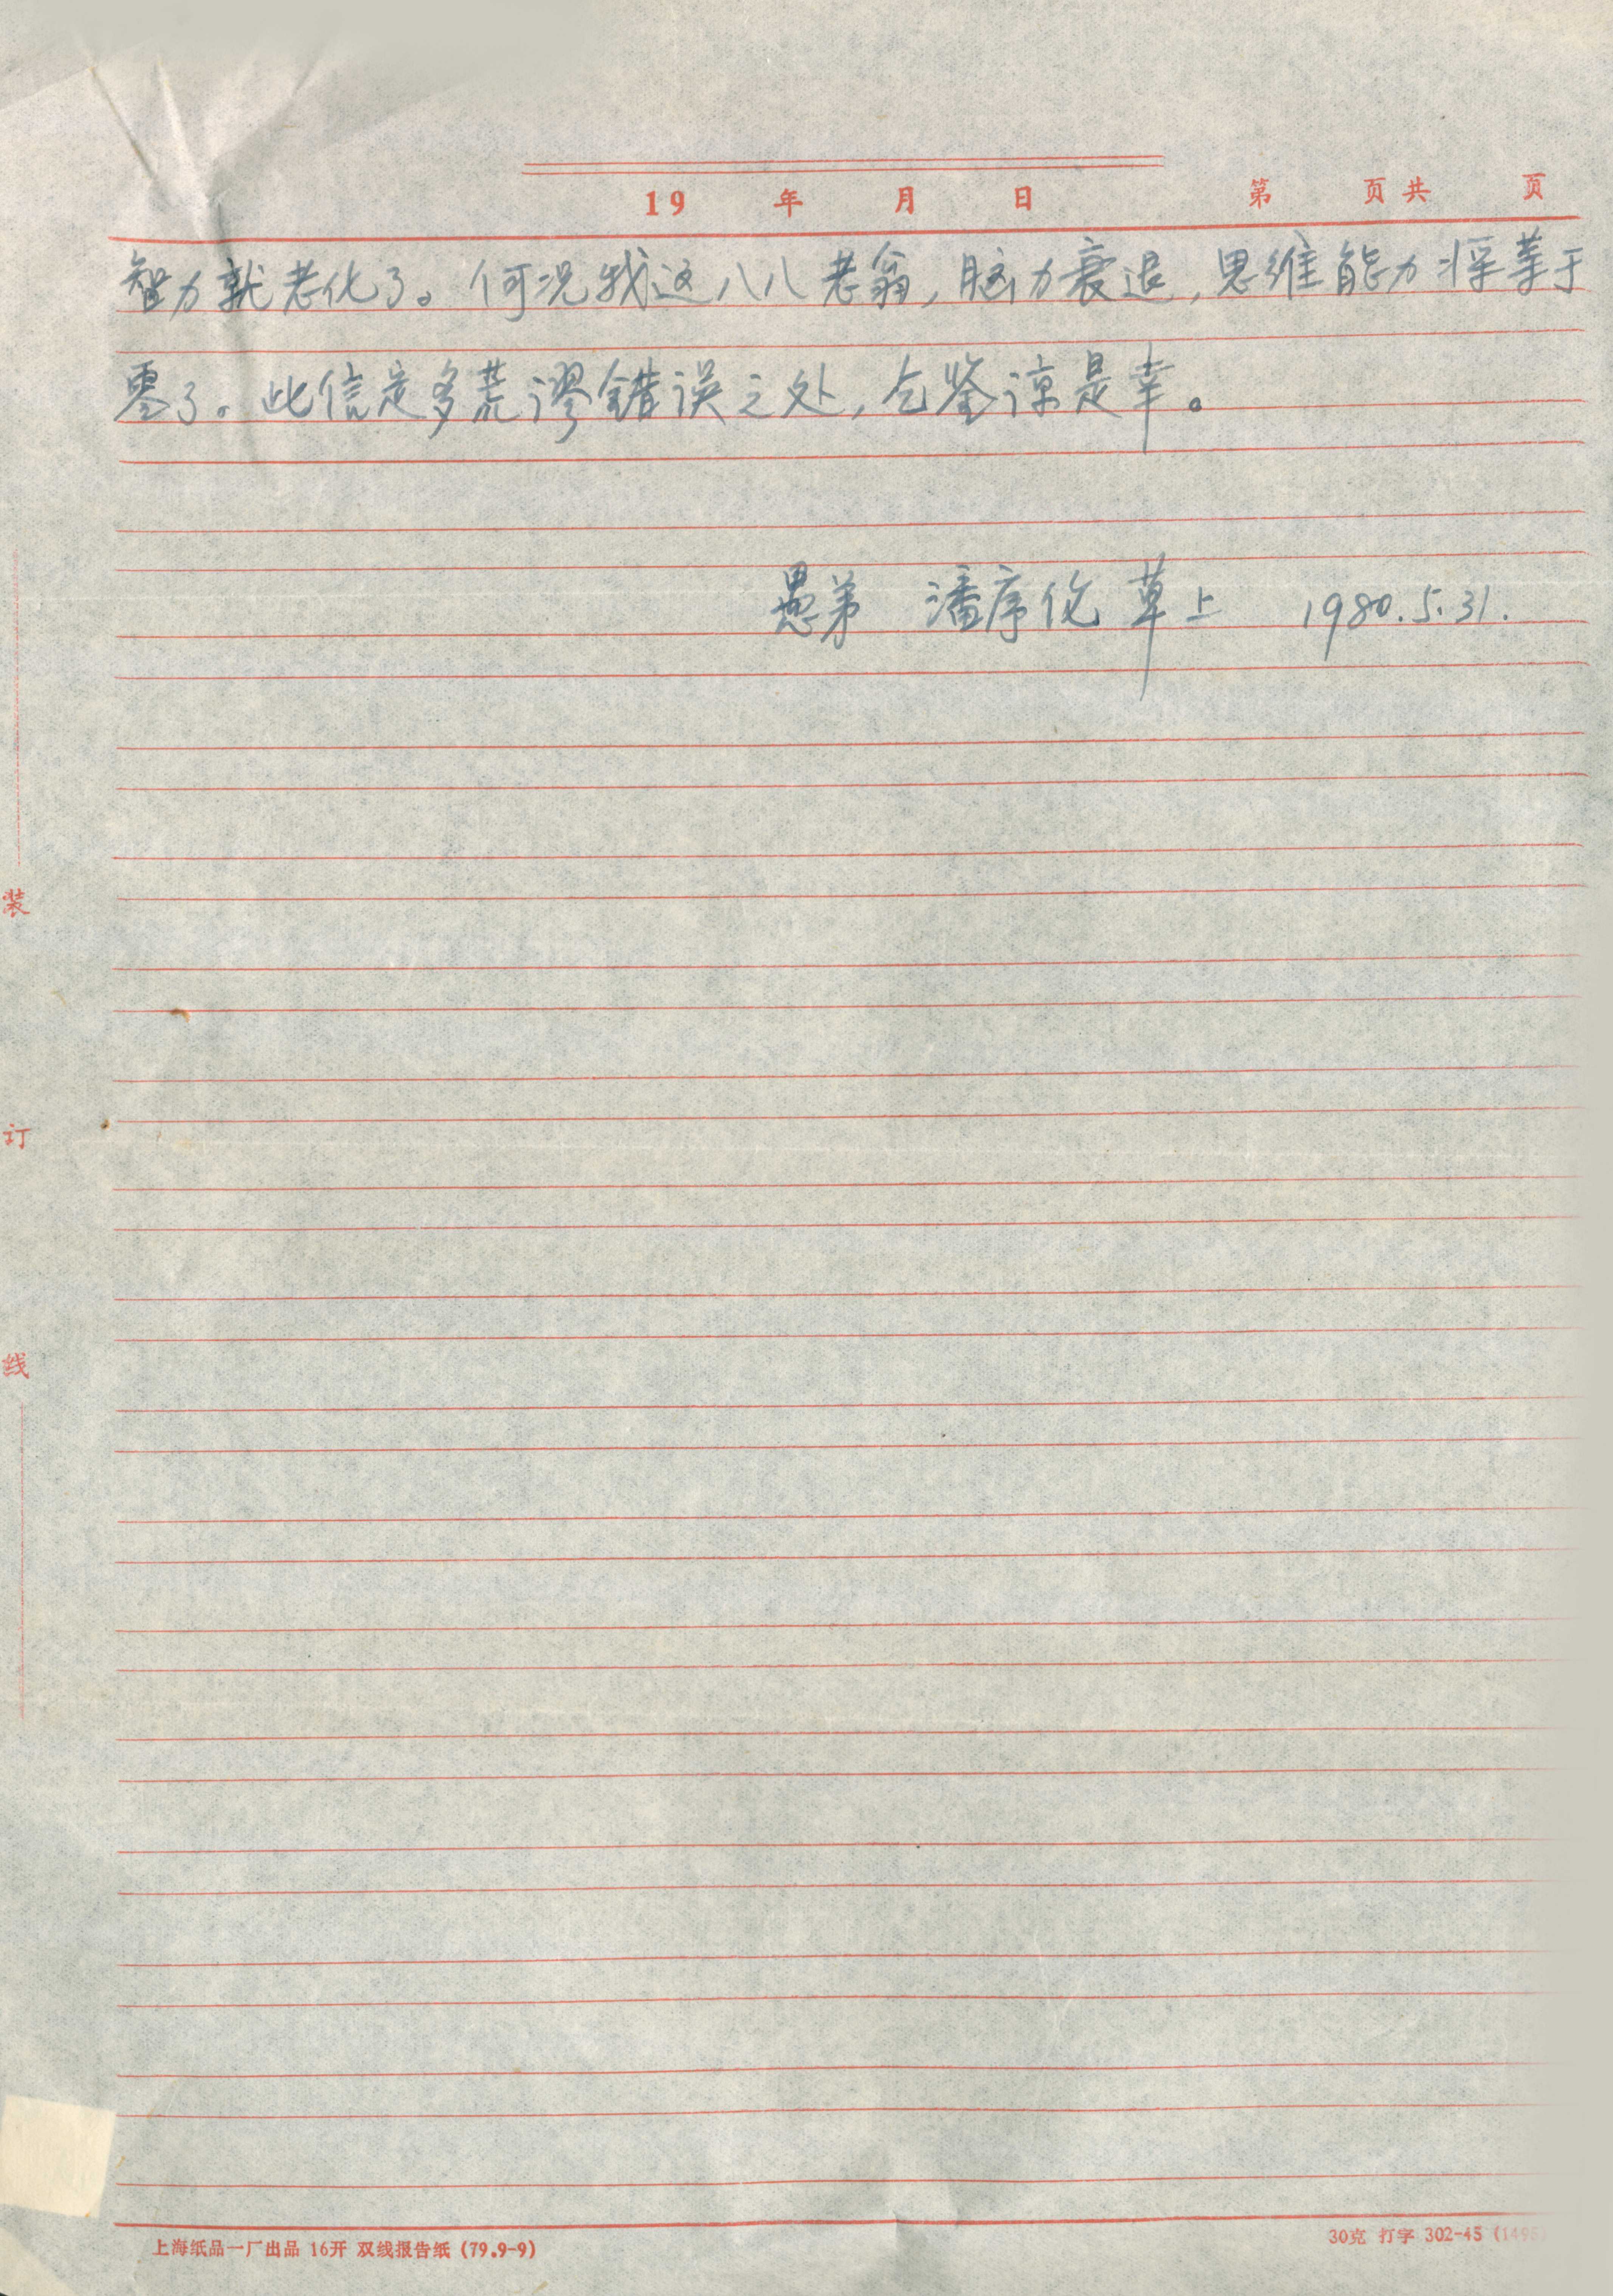 19 年 月 日 第 页共 页
智力就老化了。何况我这八八老翁,脑力衰退,思维能力将等于
零了。此信定多荒谬错误之处,乞鉴谅是幸。
愚弟 潘序伦 草上 1980.5.31.
装
订
线
上海纸品一厂出品 16开 双线报告纸 (79.9-9)
30克 打字 302-45 (1495)